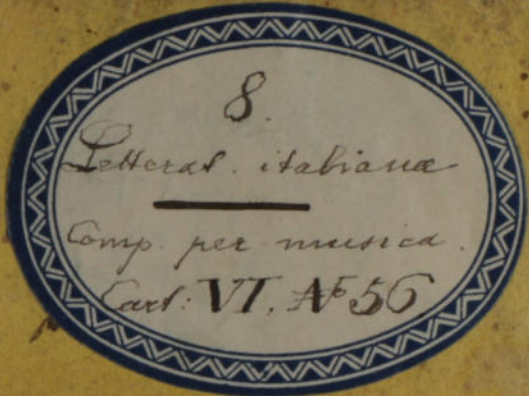 8.
Letterat. italiana
Comp. per musica.
Cart: VI. No 56